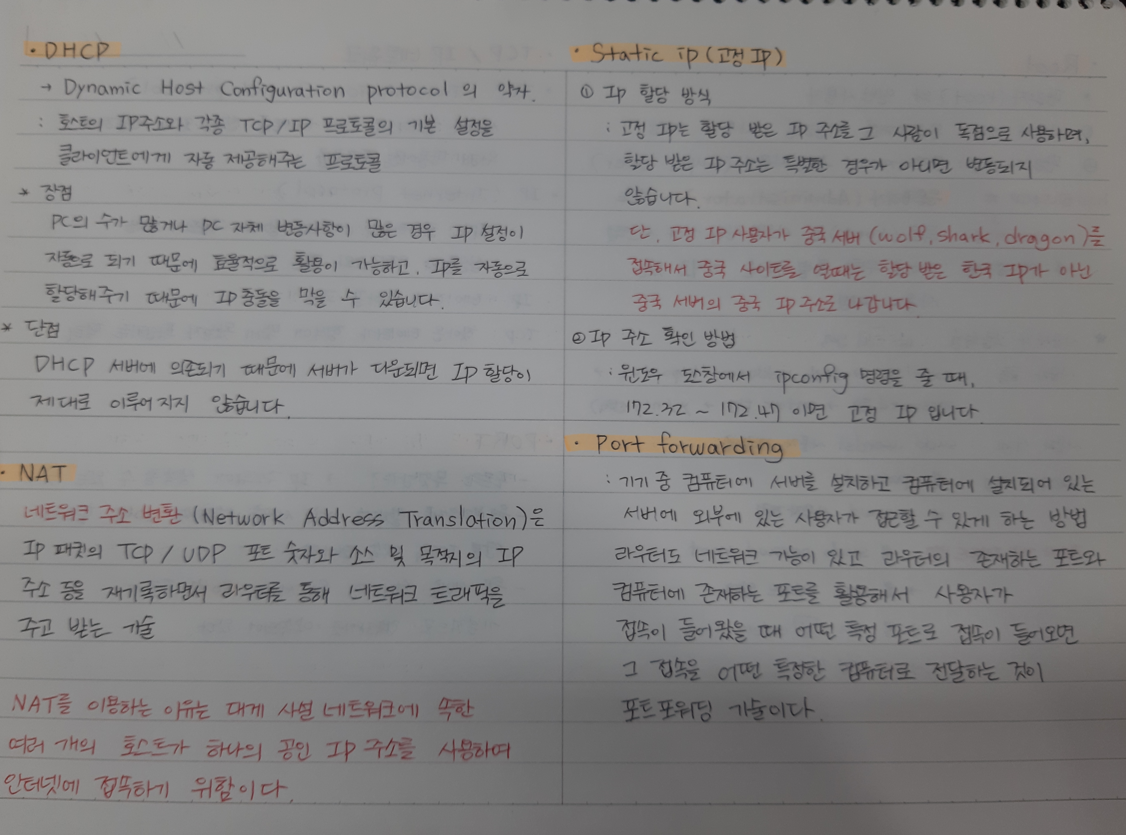 · DHCP
→ Dynamic Host Configuration protocol 의 약자.
: 호스트의 IP주소와 각종 TCP/IP 프로토콜의 기본 설정을
클라이언트에게 자동 제공해주는 프로토콜
* 장점
PC의 수가 많거나 PC 자체 변동사항이 많은 경우 IP 설정이
자동으로 되기 때문에 효율적으로 활용이 가능하고, IP를 자동으로
할당해주기 때문에 IP 충돌을 막을 수 있습니다.
* 단점
DHCP 서버에 의존되기 때문에 서버가 다운되면 IP 할당이
제대로 이루어지지 않습니다.
· NAT
네트워크 주소 변환 (Network Address Translation)은
IP 패킷의 TCP / UDP 포트 숫자와 소스 및 목적지의 IP
주소 등을 재기록하면서 라우터를 통해 네트워크 트래픽을
주고 받는 기술
NAT를 이용하는 이유는 대게 사설 네트워크에 속한
여러 개의 호스트가 하나의 공인 IP 주소를 사용하여
인터넷에 접속하기 위함이다.
· Static ip (고정 IP)
① IP 할당 방식
: 고정 IP는 할당 받은 IP 주소를 그 사람이 독점으로 사용하며,
할당 받은 IP 주소는 특별한 경우가 아니면 변동되지
않습니다.
단, 고정 IP 사용자가 중국 서버 (wolf, shark, dragon)를
접속해서 중국 사이트를 열때는 할당 받은 한국 IP가 아닌
중국 서버의 중국 IP 주소로 나갑니다.
② IP 주소 확인 방법
: 윈도우 도스창에서 ipconfig 명령을 줄 때,
172.32 ~ 172.47 이면 고정 IP 입니다.
· Port forwarding
: 기기 중 컴퓨터에 서버를 설치하고 컴퓨터에 설치되어 있는
서버에 외부에 있는 사용자가 접근할 수 있게 하는 방법
라우터도 네트워크 기능이 있고 라우터의 존재하는 포트와
컴퓨터에 존재하는 포트를 활용해서 사용자가
접속이 들어왔을 때 어떤 특정 포트로 접속이 들어오면
그 접속을 어떤 특정한 컴퓨터로 전달하는 것이
포트포워딩 기술이다.